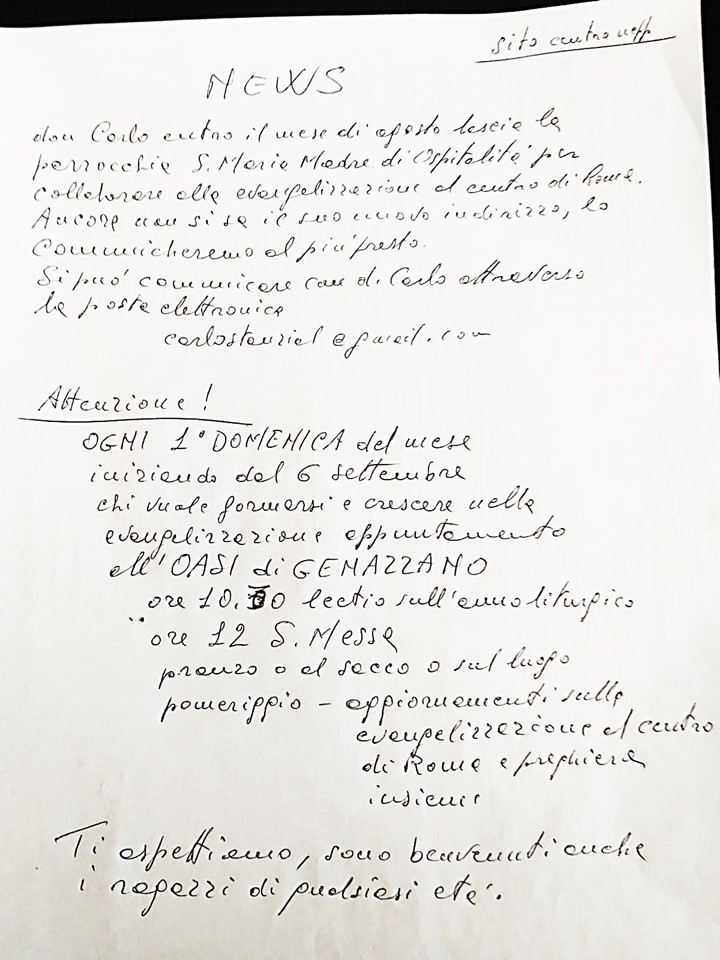 sito centro
NEWS
don Carlo entro il mese di agosto lascia la
parrocchia S. Maria Madre di Ospitalità per
collaborare alla evangelizzazione al centro di Roma.
Ancora non si sa il suo nuovo indirizzo, lo
Communicheremo al più presto.
Si può communicare con d. Carlo attraverso
la posta elettronica
@gmail.com
Attenzione!
OGNI 1° DOMENICA del mese
iniziando dal 6 settembre
chi vuole formarsi e crescere nella
evangelizzazione appuntamento
all'OASI di GENAZZANO
ore 10. lectio sull'anno liturgico
ore 12 S. Messa
pranzo o al sacco o sul luogo
pomeriggio - aggiornamenti sulla
evangelizzazione al centro
di Roma e preghiera
insieme
Ti aspettiamo, sono benvenuti anche
i ragazzi di qualsiasi età.